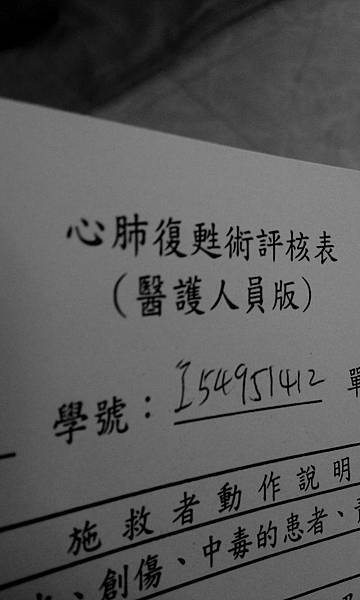 心肺復甦術評核表
(醫護人員版)
學號： I54951412
施救者動作說明
、創傷、中毒的患者、